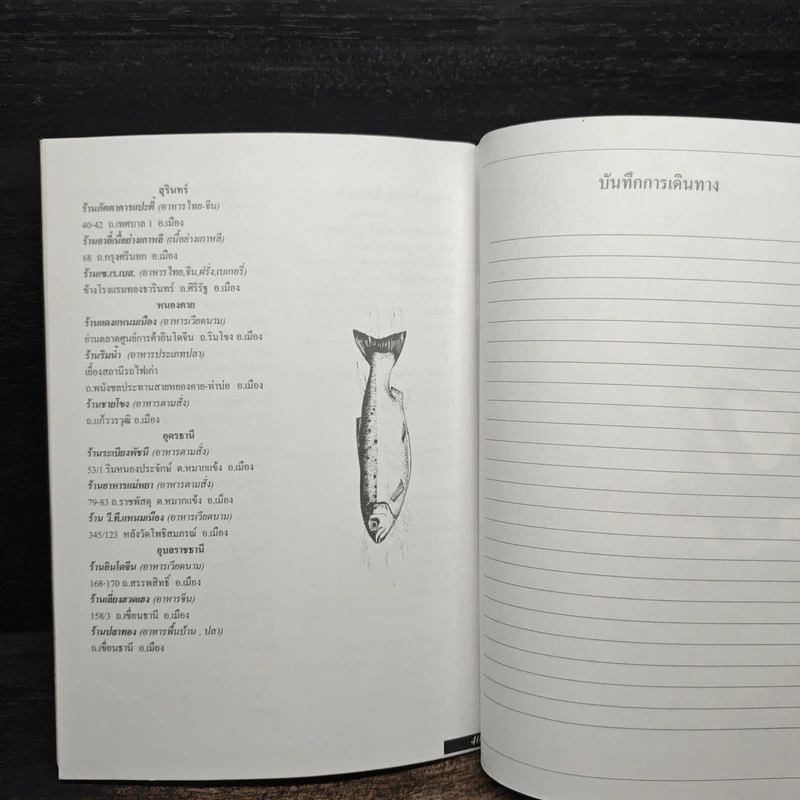 สุรินทร์
ร้านภัตตาคารแปะตี๋ (อาหารไทย-จีน)
40-42 ถ.เทศบาล 1 อ.เมือง
ร้านอาอี้เนื้อย่างเกาหลี (เนื้อย่างเกาหลี)
68 ถ.กรุงศรีนอก อ.เมือง
ร้านเซ.เร.เบส. (อาหารไทย,จีน,ฝรั่ง,เบเกอรี่)
ข้างโรงแรมทองธารินทร์ ถ.ศิริรัฐ อ.เมือง
หนองคาย
ร้านแดงแหนมเนือง (อาหารเวียดนาม)
ย่านตลาดศูนย์การค้าอินโดจีน ถ.ริมโขง อ.เมือง
ร้านริมน้ำ (อาหารประเภทปลา)
เยื้องสถานีรถไฟเก่า
ถ.พนังชลประทานสายหยองคาย-ท่าบ่อ อ.เมือง
ร้านชายโขง (อาหารตามสั่ง)
ถ.แก้ววรวุฒิ อ.เมือง
อุดรธานี
ร้านระเบียงพัชนี (อาหารตามสั่ง)
53/1 ริมหนองประจักษ์ ต.หมากแข้ง อ.เมือง
ร้านอาหารแม่หยา (อาหารตามสั่ง)
79-83 ถ.ราชพัสดุ ต.หมากแข้ง อ.เมือง
ร้าน วี.ที.แหนมเนือง (อาหารเวียดนาม)
345/123 หลังวัดโพธิสมภรณ์ อ.เมือง
อุบลราชธานี
ร้านอินโดจีน (อาหารเวียดนาม)
168-170 ถ.สรรพสิทธิ์ อ.เมือง
ร้านเลี่ยงฮวดเฮง (อาหารจีน)
158/3 ถ.เขื่อนธานี อ.เมือง
ร้านปลาทอง (อาหารพื้นบ้าน , ปลา)
ถ.เขื่อนธานี อ.เมือง
บันทึกการเดินทาง